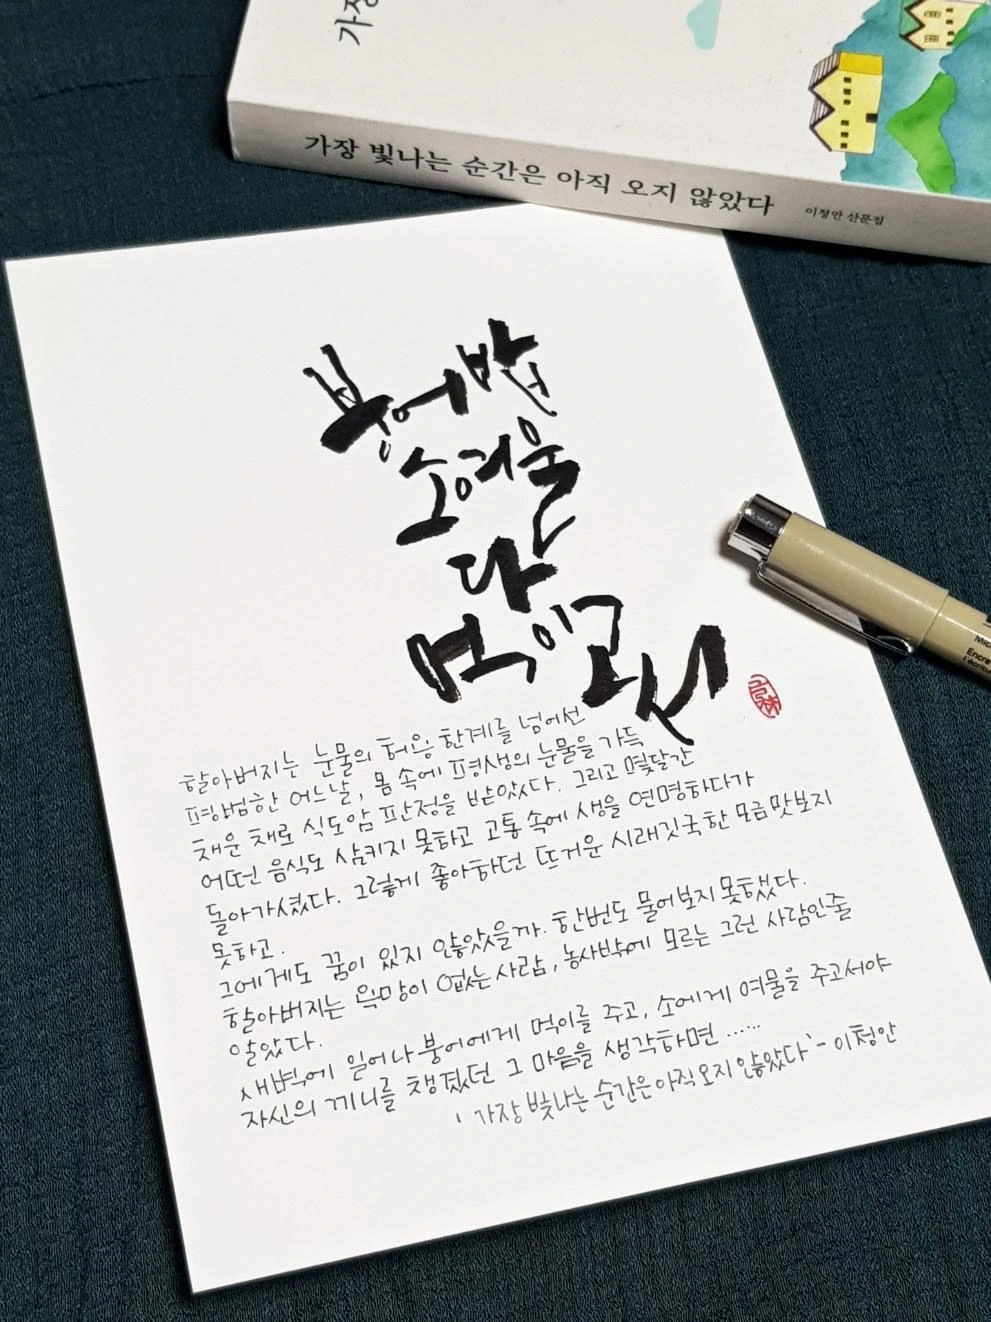 가장
가장 빛나는 순간은 아직 오지 않았다 이청안 산문집
붕어밥
소여물
다
먹이고서
할아버지는 눈물의 허용 한계를 넘어선
평범한 어느날, 몸 속에 평생의 눈물을 가득
채운 채로 식도암 판정을 받았다. 그리고 몇달간
어떤 음식도 삼키지 못하고 고통 속에 생을 연명하다가
돌아가셨다. 그렇게 좋아하던 뜨거운 시래깃국 한 모금 맛보지
못하고.
그에게도 꿈이 있지 않았을까. 한번도 물어보지 못했다.
할아버지는 욕망이 없는 사람, 농사밖에 모르는 그런 사람인줄
알았다.
새벽에 일어나 붕어에게 먹이를 주고, 소에게 여물을 주고서야
자신의 끼니를 챙겼던 그 마음을 생각하면 ......
'가장 빛나는 순간은 아직 오지 않았다' - 이청안